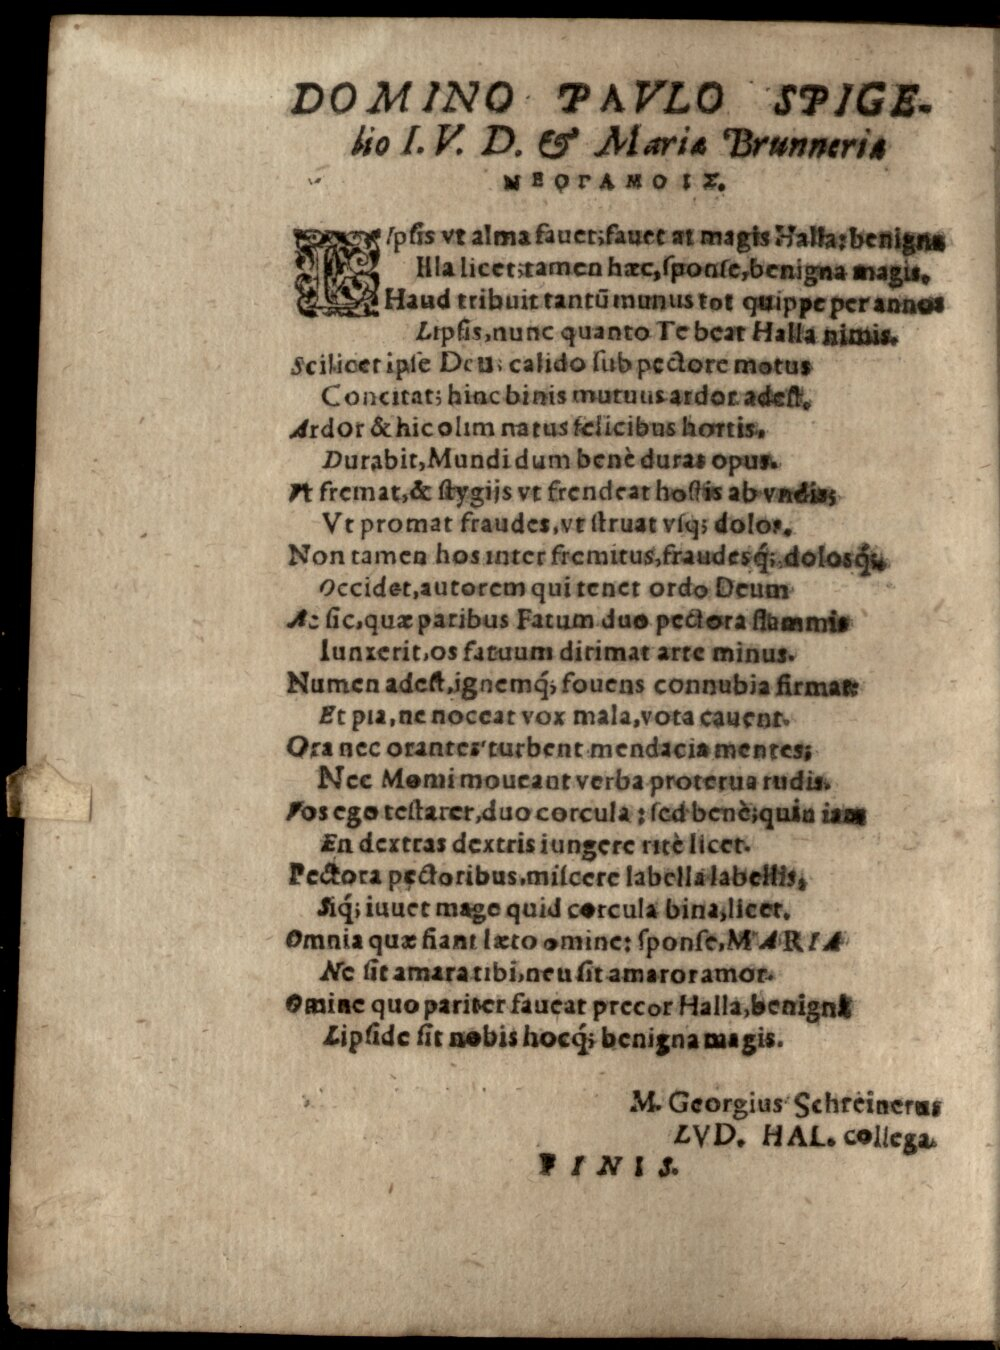 DOMINO PAVLO SPIGE-
lio I. V. D. & Maria Brunneria
ΝΕΟΓΑΜΟΙΣ.
LIpsis vt alma fauet; fauet at magis Halla; benigna
Illa licet; tamen hæc, sponse, benigna magis.
Haud tribuit tantũ munus tot quippe per annos
Lipsis, nunc quanto Te beat Halla nimis.
Scilicet ipse Deus calido sub pectore motus
Concitat; hinc binis mutuus ardor adest.
Ardor & hic olim natus felicibus hortis.
Durabit, Mundi dum benè duras opus.
Vt fremat, & stygijs vt frendeat hostis ab vndis;
Vt promat fraudes, vt struat vsq; dolos.
Non tamen hos inter fremitus, fraudesq́; dolosq́;,
Occidet, autorem qui tenet ordo Deum
Ac sic, quæ paribus Fatum duo pectora flammis
Iunxerit, os fatuum dirimat arte minus.
Numen adest, ignemq́; fouens connubia firmat:
Et pia, ne noceat vox mala, vota cauent.
Ora nec orantes turbent mendacia mentes;
Nec Momi moueant verba proterua rudis.
Vos ego testarer, duo corcula; sed benè; quin iam
En dextras dextris iungere ritè licet.
Pectora pectoribus, miscere labella labellis,
Siq; iuuet mage quid corcula bina, licet.
Omnia quæ fiant læto omine: sponse, MARIA
Ne sit amara tibi, neu sit amaror amor.
Omine quo pariter faueat precor Halla, benigna
Lipside sit nobis hocq́; benigna magis.
M. Georgius Schreinerus
LVD. HAL. collega.
FINIS.